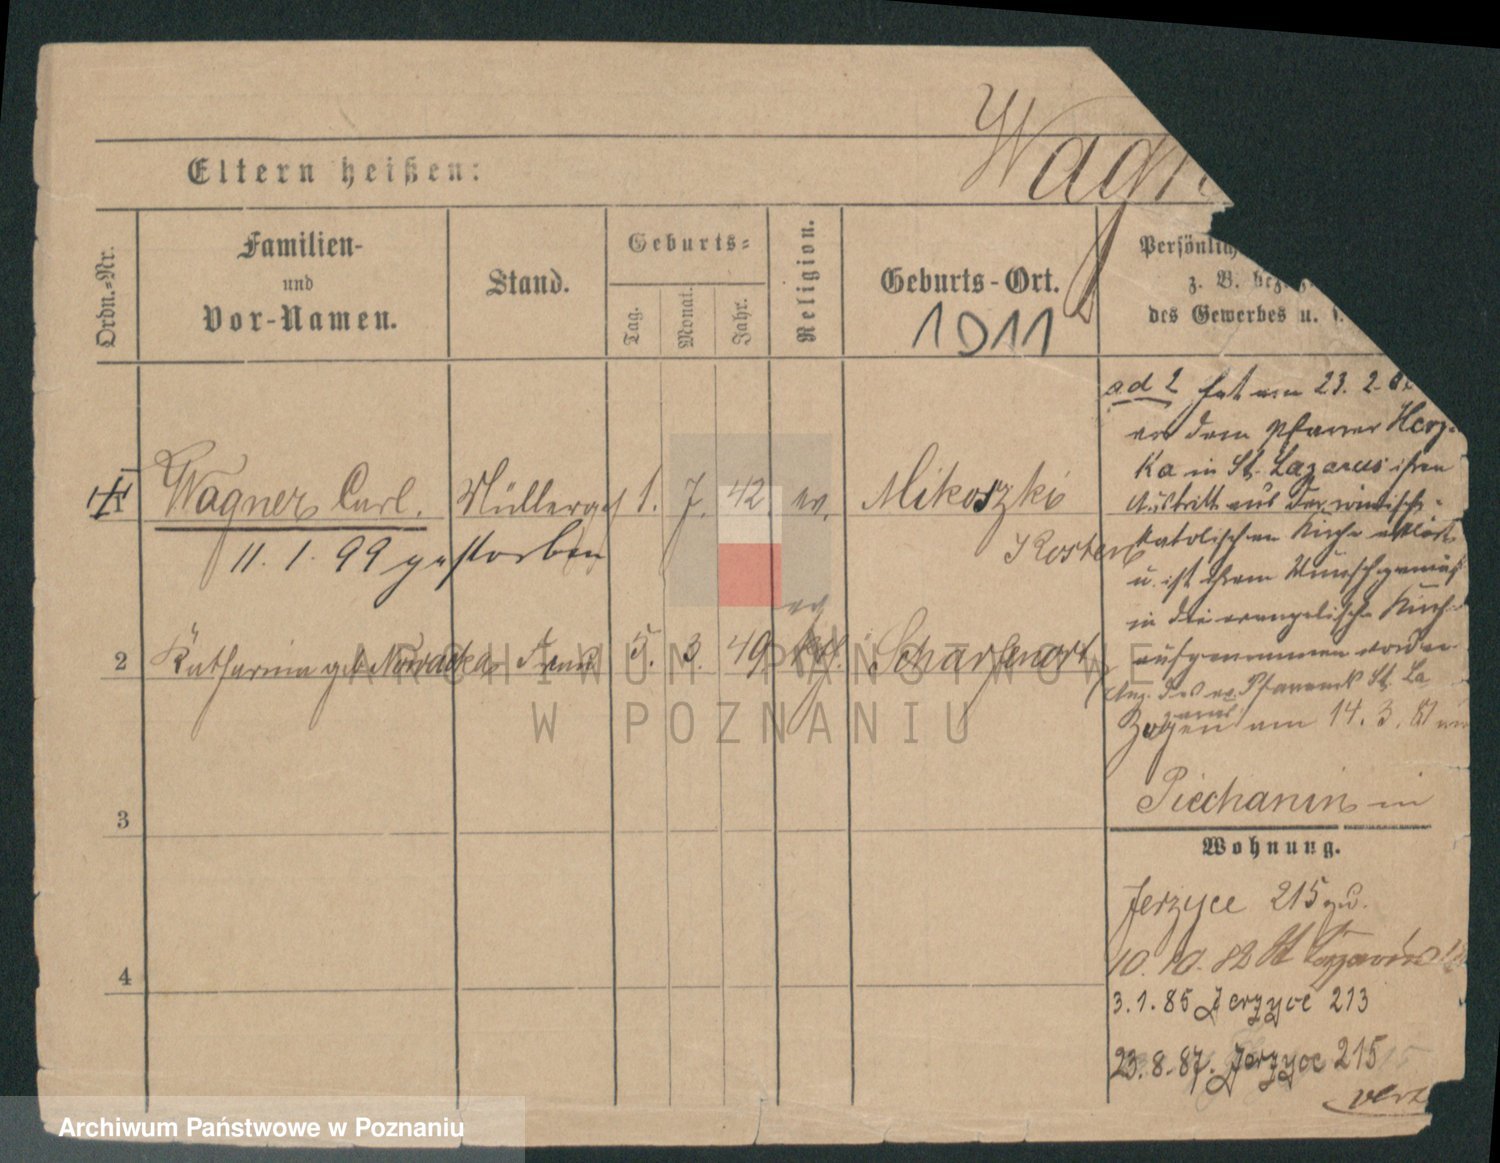 Wagn
Eltern heißen:
Ordn.-Nr.
Familien-
und
Vor-Namen.
Stand.
Geburts-
Tag.
Monat.
Jahr.
Religion.
Geburts-Ort.
1911
Persönlich
z. B. bez
des Gewerbes u.
1
Wagner Carl.
Müllerges
1. 7. 42 ev.
Mikoszki
Kosten
11. 1. 99 gestorben
ev
2
Katharina geb Nowacka Frau
5. 3. 49 kath.
Scharfenort
3
4
ad 2 hat am 23. 2.
vor dem Pfarrer Herz-
ka in St. Lazarus ihren
Austritt aus der römisch-
katolischen Kirche erklärt
u. ist ihrem Wunsch gemäß
in die evangelische Kirche
aufgenommen worden
Ang. des ev. Pfarramts St. La
zarus
Zogen am 14. 3. 81 von
Piechanin in
Wohnung.
Jerzyce 215 zu.
10. 10. 82 St Lazarus
3. 1. 85 Jerzyce 213
23. 8. 87. Jerzyce 215
vert
ARCHIWUM PAŃSTWOWE
W POZNANIU
Archiwum Państwowe w Poznaniu